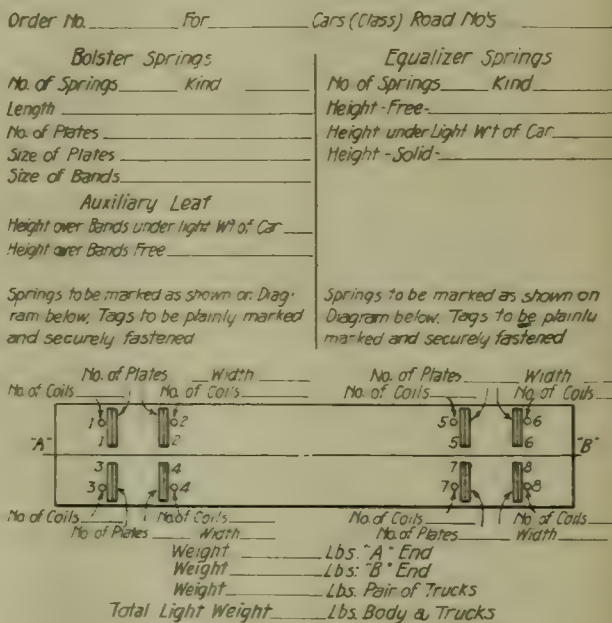 Order No. For Cars (Class) Road No's
Bolster Springs
No. of Springs Kind
Length
No. of Plates
Size of Plates
Size of Bands
Auxiliary Leaf
Height over Bands under light W't of Car
Height over Bands Free
Springs to be marked as shown on Diag-
ram below, Tags to be plainly marked
and securely fastened
Equalizer Springs
No of Springs Kind
Height-Free-
Height under Light W't of Car
Height -Solid-
Springs to be marked as shown on
Diagram below. Tags to be plainly
marked and securely fastened
No. of Plates Width No. of Plates Width
No. of Coils No. of Coils No. of Coils No. of Coils
1 2 5 6
1 2 5 6
"A" "B"
3 4 7 8
3 4 7 8
No of Coils No. of Coils No. of Coils No of Coils
No of Plates Width No. of Plates Width
Weight Lbs. "A" End
Weight Lbs. "B" End
Weight Lbs. Pair of Trucks
Total Light Weight Lbs. Body & Trucks